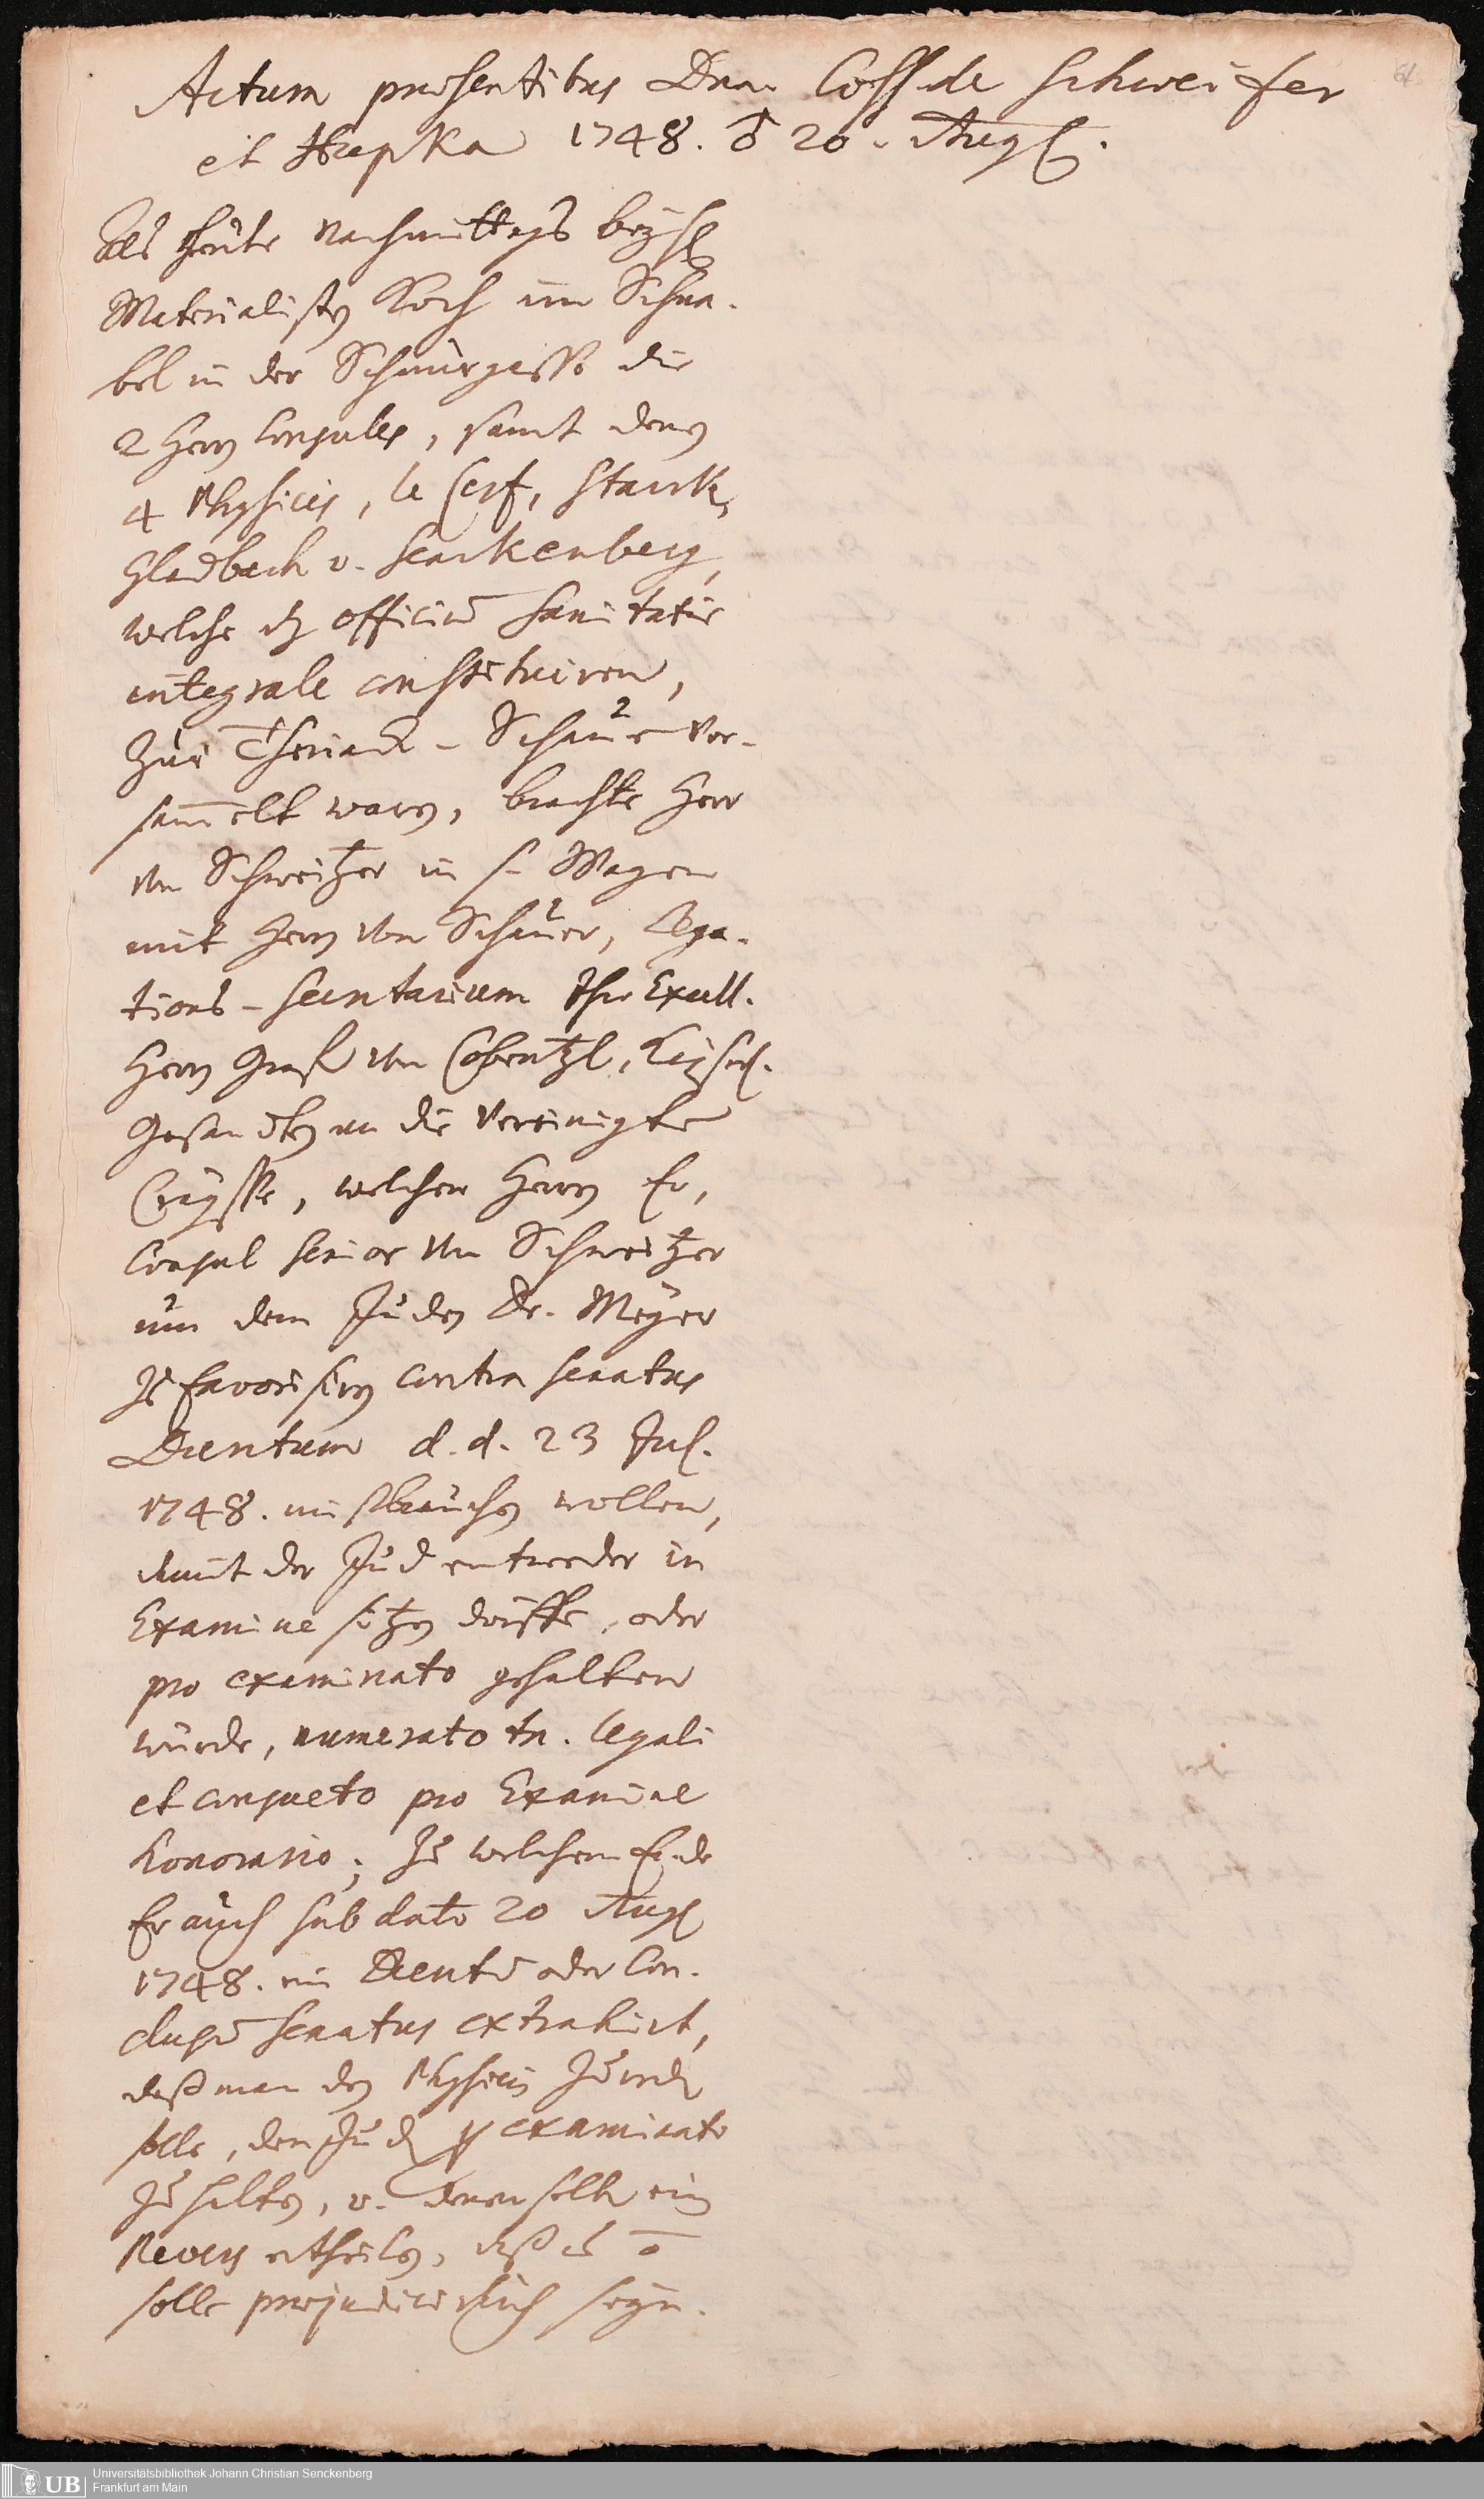 Actum praesentibus Dnn. Coss. de Schweitzer
et Hupka 1748. ♂ 20. Aug.
Als heute Nachmittags bey H.
Materialisten Koch im Schna-
bel in der Schnurgasse die
2 Herrn Consules, samt denen
4 Physicis, le Cerf, Starck,
Gladbach v. Senckenberg,
welche dz officiū Sanitatis
integrale constituiren,
zur Theriack-Schau ver-
sam̄elt waren, brachte Herr
von Schweitzer in s. Wagen
mit Herrn von Schauer, Lega-
tions-Secretarium Ihr Excell.
Herrn Graff von Cobentzl, Keyserl.
Gesandten an die Vereinigte
Craysse, welchen Herrn Er,
Consul Senior von Schweitzer
um dem Juden Dr. Meyer
zu favorisiren contra Senatus
Decretum d. d. 23 Jul.
1748. missbrauchen wollen,
damit der Jud entweder in
Examine sitzen dörffte, oder
pro examinato gehalten
würde, numerato tn. legali
et consueto pro Examine
honorario; zu welchem Ende
Er auch sub dato 20 Aug
1748. ein Decretū oder Con-
clusū Senatus extrahirt,
dass man den Physicis zured
solle, den Jud p examinato
zu halten, v. denenselben ein
Revers ertheilen, dass es ō
solle praejudicirlich seyn.
UB Universitätsbibliothek Johann Christian Senckenberg
Frankfurt am Main